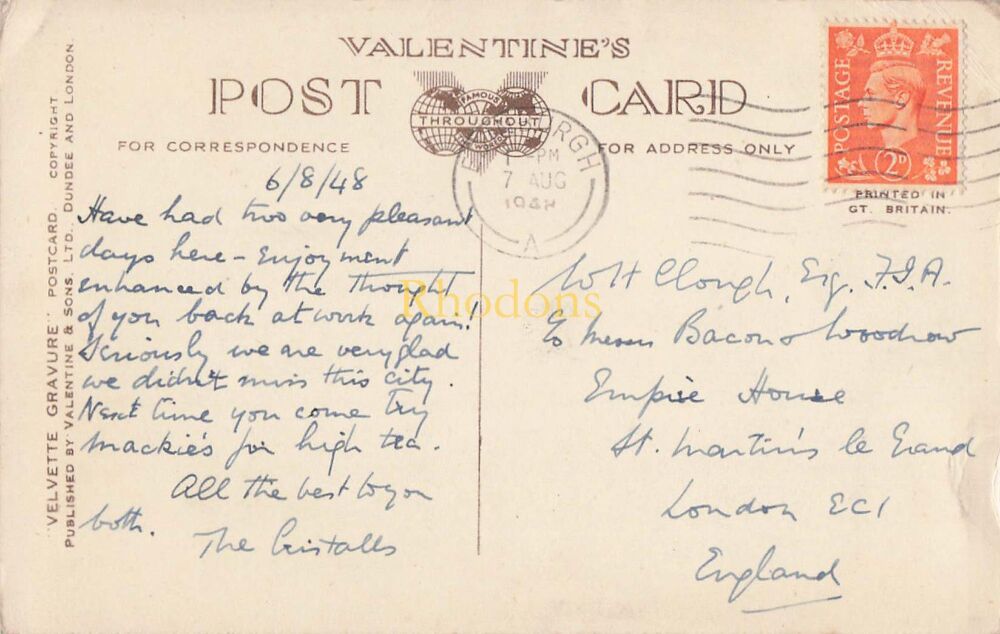 VALENTINE'S
POST CARD
FAMOUS
THROUGHOUT
THE WORLD
FOR CORRESPONDENCE
FOR ADDRESS ONLY
"VELVETTE GRAVURE" POSTCARD. COPYRIGHT
PUBLISHED BY VALENTINE & SONS, LTD., DUNDEE AND LONDON.
POSTAGE REVENUE
2D
PRINTED IN
GT. BRITAIN.
PM
7 AUG
1948
A
6/8/48
Have had two very pleasant
days here - Enjoyment
enhanced by the thought
of you back at work again!
Seriously we are very glad
we didn't miss this city.
Next time you come try
Mackie's for high tea.
All the best to you
both.
The
W H Clough, Esq. F.I.A.
c/o Messrs Bacon & Woodrow
Empire House
St. Martin's le Grand
London EC1
England
Rhodons